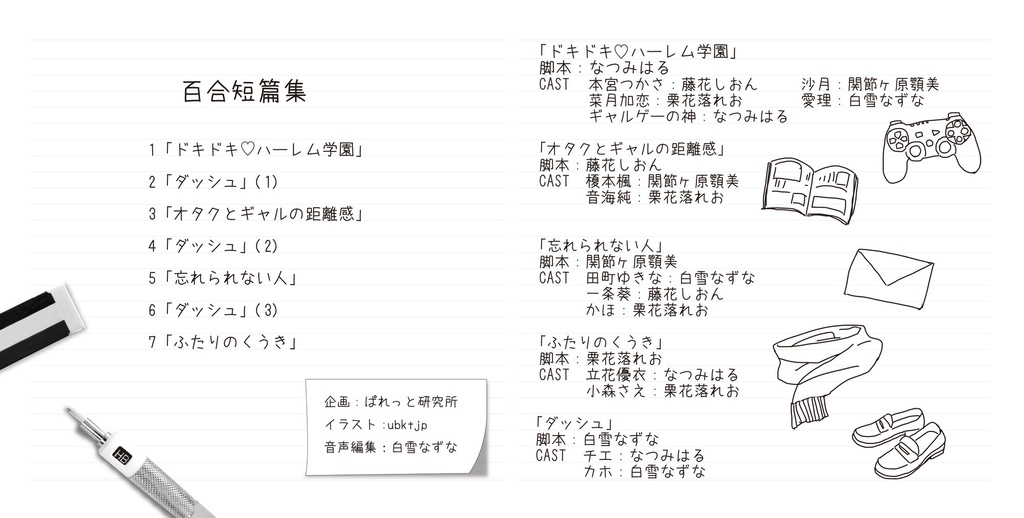 百合短篇集
1「ドキドキ♡ハーレム学園」
2「ダッシュ」(1)
3「オタクとギャルの距離感」
4「ダッシュ」(2)
5「忘れられない人」
6「ダッシュ」(3)
7「ふたりのくうき」
企画：ぱれっと研究所
イラスト：ubkt.jp
音声編集：白雪なずな
HB
「ドキドキ♡ハーレム学園」
脚本：なつみはる
CAST 本宮つかさ：藤花しおん 沙月：関節ヶ原顎美
菜月加恋：栗花落れお 愛理：白雪なずな
ギャルゲーの神：なつみはる
「オタクとギャルの距離感」
脚本：藤花しおん
CAST 榎本楓：関節ヶ原顎美
音海純：栗花落れお
「忘れられない人」
脚本：関節ヶ原顎美
CAST 田町ゆきな：白雪なずな
一条葵：藤花しおん
かほ：栗花落れお
「ふたりのくうき」
脚本：栗花落れお
CAST 立花優衣：なつみはる
小森さえ：栗花落れお
「ダッシュ」
脚本：白雪なずな
CAST チエ：なつみはる
カホ：白雪なずな